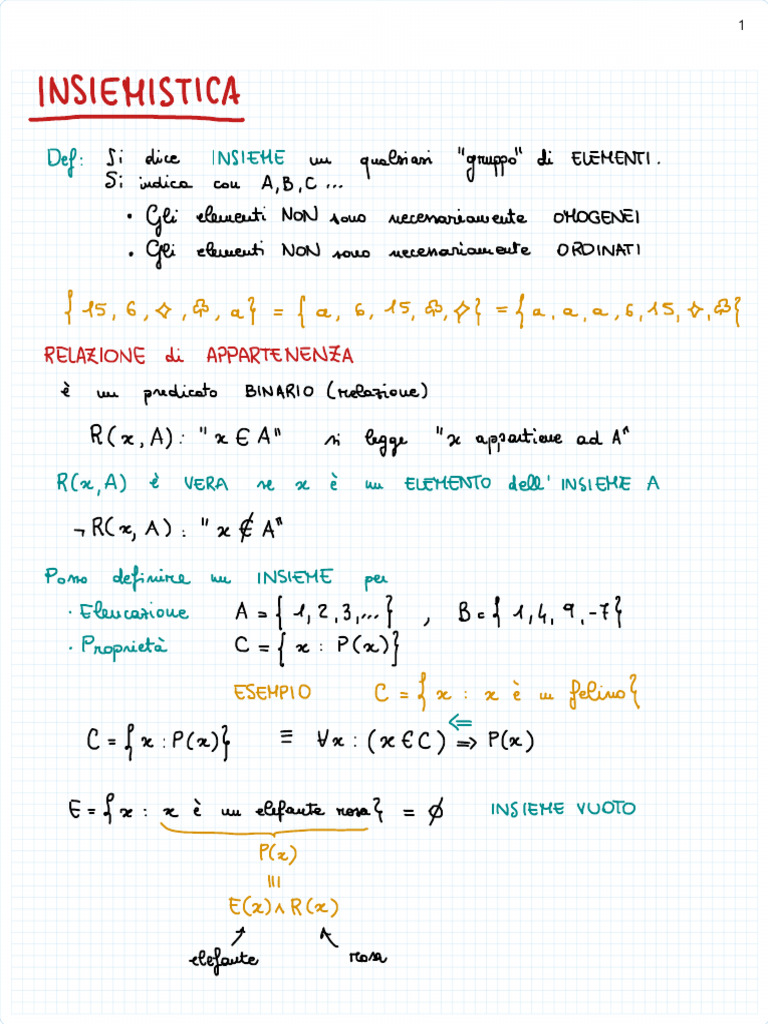 1
INSIEMISTICA
Def: Si dice INSIEME un qualsiasi "gruppo" di ELEMENTI.
Si indica con A, B, C ...
• Gli elementi NON sono necessariamente OMOGENEI
• Gli elementi NON sono necessariamente ORDINATI
{15, 6, ✧, ♧, a} = {a, 6, 15, ♧, ✧} = {a, a, a, 6, 15, ✧, ♧}
RELAZIONE di APPARTENENZA
è un predicato BINARIO (relazione)
R(x, A) : "x ∈ A" si legge "x appartiene ad A"
R(x, A) è VERA se x è un ELEMENTO dell'INSIEME A
¬R(x, A) : "x ∉ A"
Posso definire un INSIEME per
• Elencazione A = {1, 2, 3, ...} , B = {1, 4, 9, -7}
• Proprietà C = {x : P(x)}
ESEMPIO C = {x : x è un felino}
⇐
C = {x : P(x)} ≡ ∀x : (x ∈ C) ⇒ P(x)
E = {x : x è un elefante rosa} = ∅ INSIEME VUOTO
P(x)
≡
E(x) ∧ R(x)
elefante rosa